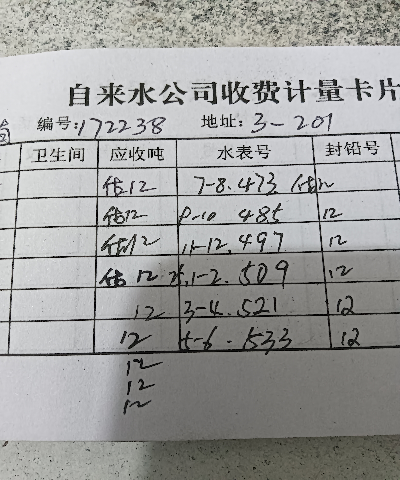 自来水公司收费计量卡片
编号:172238 地址:3-201
卫生间 应收吨 水表号 封铅号
估12 7-8.473 估12
估12 9-10 485 12
估12 11-12.497 12
估12 1-2.509 12
12 3-4.521 12
12 5-6.533 12
12
12
12